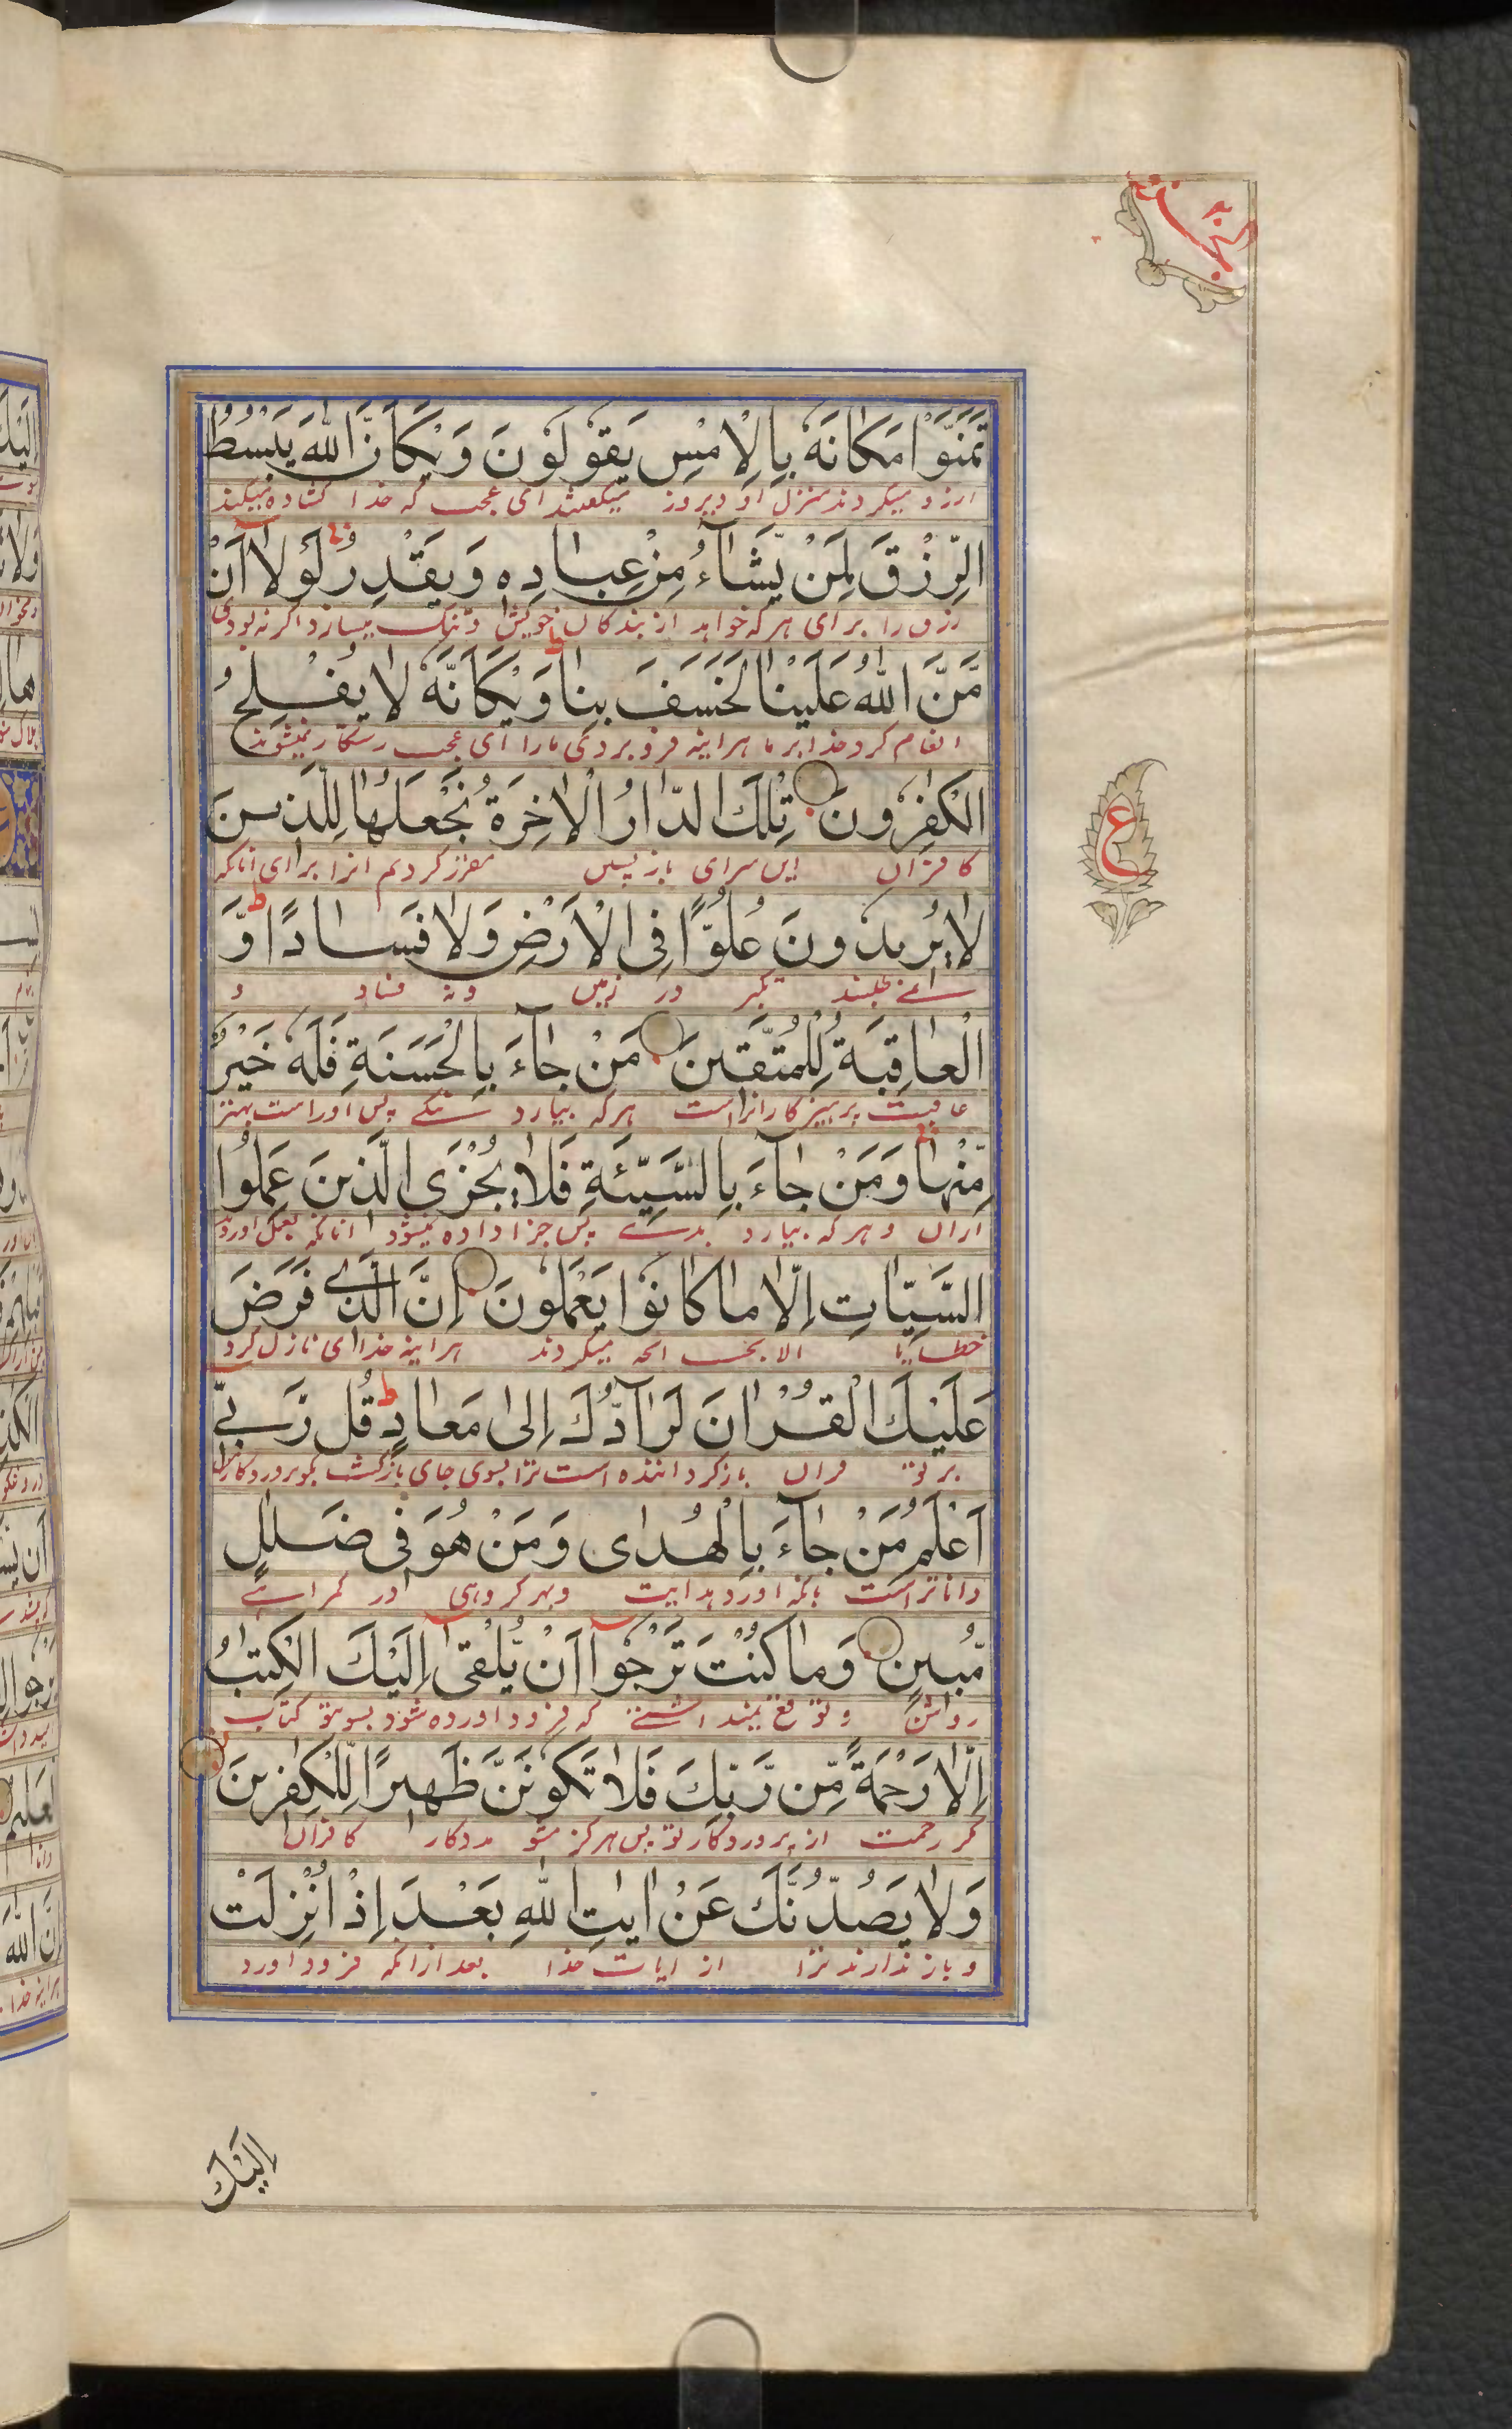 تَمَنَّوْا مَكَانَهٗ بِالْاَمْسِ يَقُوْلُوْنَ وَيْكَاَنَّ اللّٰهَ يَبْسُطُ
ارزو میکردند منزل او دیروز میکفتند ای عجب که خدا کشاده میکند
الرِّزْقَ لِمَنْ يَّشَآءُ مِنْ عِبَادِهٖ وَيَقْدِرُ لَوْلَاۤ اَنْ
رزق را برای هرکه خواهد از بندکان خویش و تنک میسازد اکر نه بودی
مَّنَّ اللّٰهُ عَلَيْنَا لَخَسَفَ بِنَا ط وَيْكَاَنَّهٗ لَا يُفْلِحُ
انعام کرد خدا بر ما هراینه فرو بردی مارا ای عجب رستکار نمیشوند
الْكٰفِرُوْنَ تِلْكَ الدَّارُ الْاٰخِرَةُ نَجْعَلُهَا لِلَّذِيْنَ
کافران این سرای بازپسین مقرر کردیم انرا برای انانکه
لَا يُرِيْدُوْنَ عُلُوًّا فِى الْاَرْضِ وَلَا فَسَادًا ط وَّ
تکبر در زمین و نه فساد و
الْعَاقِبَةُ لِلْمُتَّقِيْنَ مَنْ جَآءَ بِالْحَسَنَةِ فَلَهٗ خَيْرٌ
عاقبت پرهیزکارانراست هرکه بیارد نیکے پس اوراست بهتر
مِّنْهَا وَمَنْ جَآءَ بِالسَّيِّئَةِ فَلَا يُجْزَى الَّذِيْنَ عَمِلُوا
ازان و هرکه بیارد بدے پس جزا داده نمیشود انانکه بعمل اوردند
السَّيِّاٰتِ اِلَّا مَا كَانُوْا يَعْمَلُوْنَ اِنَّ الَّذِىْ فَرَضَ
خطایا الا بحسب انچه میکردند هراینه خدای نازل کرد
عَلَيْكَ الْقُرْاٰنَ لَرَآدُّكَ اِلٰى مَعَادٍ ط قُلْ رَّبِّىْ
بر تو قران بازکرداننده است ترا بسوی جای بازکشت بکو پروردکار
اَعْلَمُ مَنْ جَآءَ بِالْهُدٰى وَمَنْ هُوَ فِىْ ضَلٰلٍ
داناتر است بانکه اورد هدایت وبهر که وی در کمراهے
مُّبِيْنٍ وَمَا كُنْتَ تَرْجُوْۤا اَنْ يُّلْقٰۤى اِلَيْكَ الْكِتٰبُ
روشن و توقع نمیداشتے که فرود اورده شود بسوی تو کتاب
اِلَّا رَحْمَةً مِّنْ رَّبِّكَ فَلَا تَكُوْنَنَّ ظَهِيْرًا لِّلْكٰفِرِيْنَ
مکر رحمت از پروردکار تو پس هرکز مشو مددکار کافران
وَلَا يَصُدُّنَّكَ عَنْ اٰيٰتِ اللّٰهِ بَعْدَ اِذْ اُنْزِلَتْ
و باز ندارند ترا از ایات خدا بعد ازانکه فرود اورد
ع
اِلَيْكَ